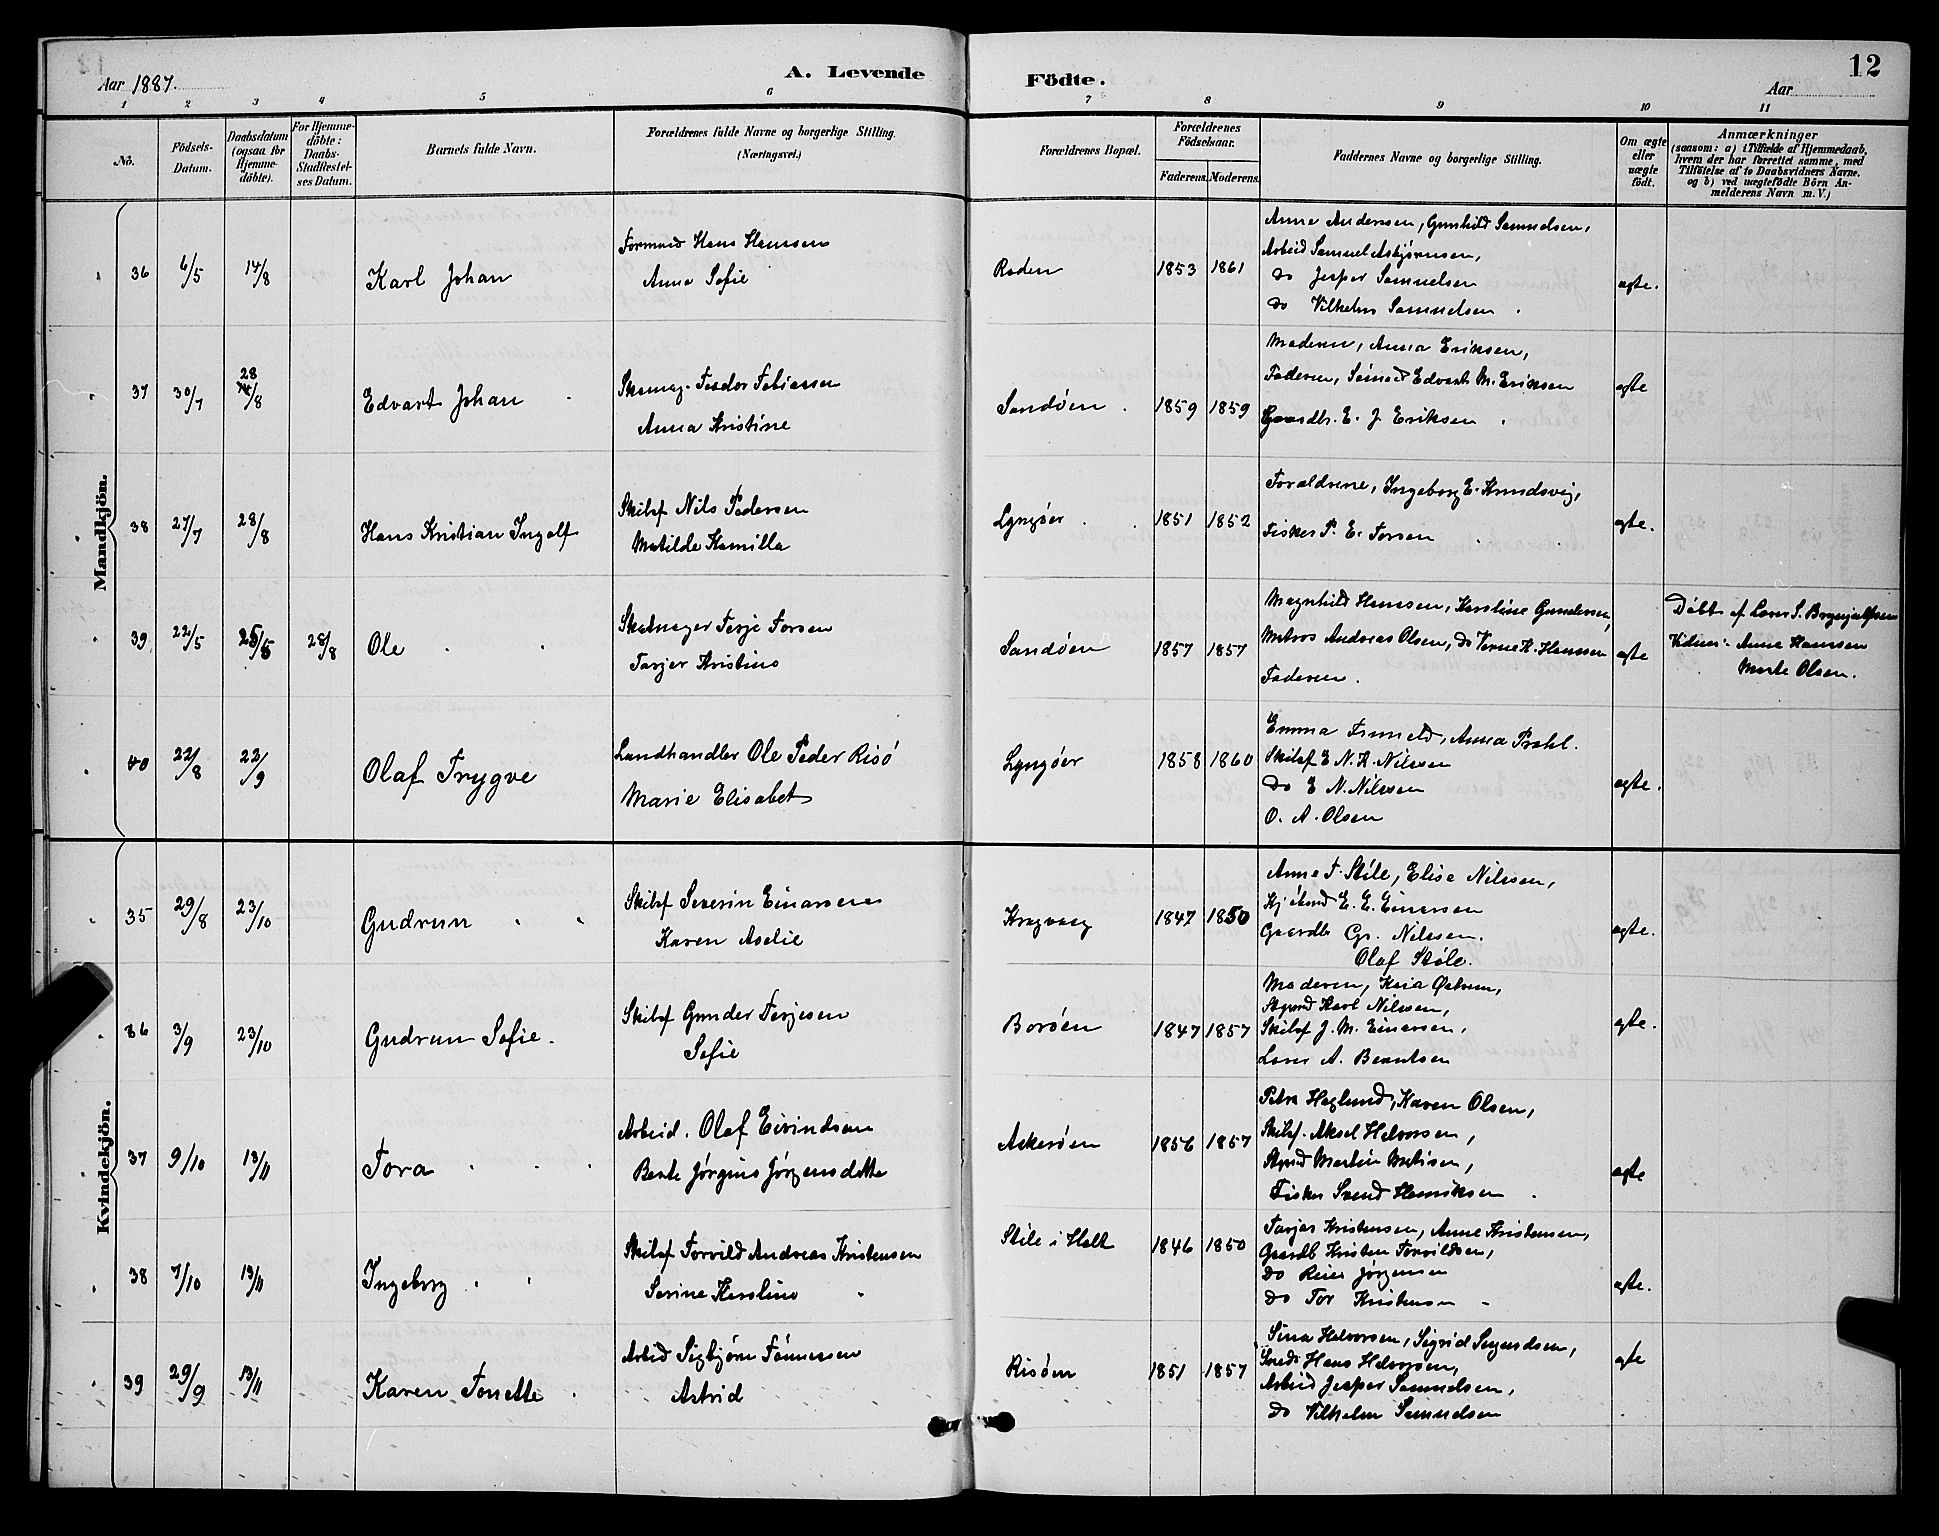 Aar 1887.
A. Levende Födte.
Aar
12
1 2 3 4 5 6 7 8 9 10 11
No.
Födsels-Datum.
Daabsdatum (ogsaa for Hjemme-döbte).
For Hjemme-döbte: Daabs-Stadfæstel-ses Datum.
Barnets fulde Navn.
Forældrenes fulde Navne og borgerlige Stilling. (Næringsvei.)
Forældrenes Bopæl.
Forældrenes Födselsaar.
Faderens. Moderens.
Faddernes Navne og borgerlige Stilling.
Om ægte eller uægte födt.
Anmærkninger
(saasom: a) i Tilfælde af Hjemmedaab, hvem der har forrettet samme, med Tilföielse af to Daabsvidners Navne. og b) ved uægtefödte Börn An-melderens Navn m. V.)
Mandkjön.
36 6/5 14/8 Karl Johan
Formand Hans Hanssen
Anna Sofie
Roden 1853 1861
Anne Anderssen, Gunhild Samuelsen,
Arbeid Samuel Asbjørnsen,
Do Jesper Samuelsen
Do Vilhelm Samuelsen
ægte.
37 30/7 28/8 Edvart Johan
Skomag. Teodor Tobiassen
Anna Kristine
Sandøen. 1859 1859
Moderen, Anna Eriksen,
Faderen, Sømad Edvart M. Eriksen
Gaardbr. E. J. Eriksen
ægte
38 27/7 28/8 Hans Kristian Ingolf
Skibsf Nils Pedersen
Matilde Kamilla
Lyngøer 1851 1852
Forældrene, Ingeborg E. Knudsvig,
Fisker P. E. Torsen
ægte.
39 22/5 25/5 28/8 Ole
Skomager Terje Torsen
Tarjer Kristine
Sandøen 1857 1857
Magnhild Hanssen, Karoline Gundersen,
Matros Andreas Olsen, Do Verne K. Hanssen
Faderen.
ægte
Døbt af Lærer S. Brynjulfsen
Vidner: Anne Hanssen
Marte Olsen.
40 22/8 22/9 Olaf Trygve
Landhandler Ole Peder Risø
Marie Elisabet
Lyngøer 1858 1860
Emma, Anna Prahl.
Skibsf E N. K. Nilssen
Do E N. Nilssen
O. A. Olsen
ægte.
Kvindekjön.
35 29/8 23/10 Gudrun
Skibsf Severin Einarsen
Karen Aselie
Kragvaag 1847 1850
Anne T. Støle, Elise Nilssen,
E. E. Einarsen
Gaardb Gr. Nilssen.
Olaf Støle.
ægte.
36 3/9 23/10 Gudrun Sofie.
Skibsf Gunder Terjesen
Sofie
Borøen 1847 1857
Moderen, Kaia Østrem,
Styrmd Karl Nilssen,
Skibsf J. M. Einarsen,
Lærer A. Berntsen
ægte.
37 9/10 13/11 Tora
Arbeid. Olaf Eivindsen
Berte Jørgine Jørgensdatter
Askerøen 1856 1857
Petra Haglund, Karen Olsen,
Skibsf. Aksel Halvorsen,
Styrmd Martin Matisen,
Fisker Svend Henriksen
ægte
38 7/10 13/11 Ingeborg
Skibsf Torvild Andreas Kristensen
Serine Karoline
Støle i Holt 1846 1850
Tarjer Kristensen, Anne Kristensen,
Gaardb Kristen Torvildsen,
Do Reier Jørgensen
Do Tor Kristensen
ægte.
39 29/9 13/11 Karen Tonette
Arbeid Sigbjørn Tønnessen
Astrid
Risøen 1851 1857
Sina Halvorsen, Sigrid Sigurdsen,
Hans Halvorsen,
Arbeid Jesper Samuelsen,
Do Vilhelm Samuelsen
ægte